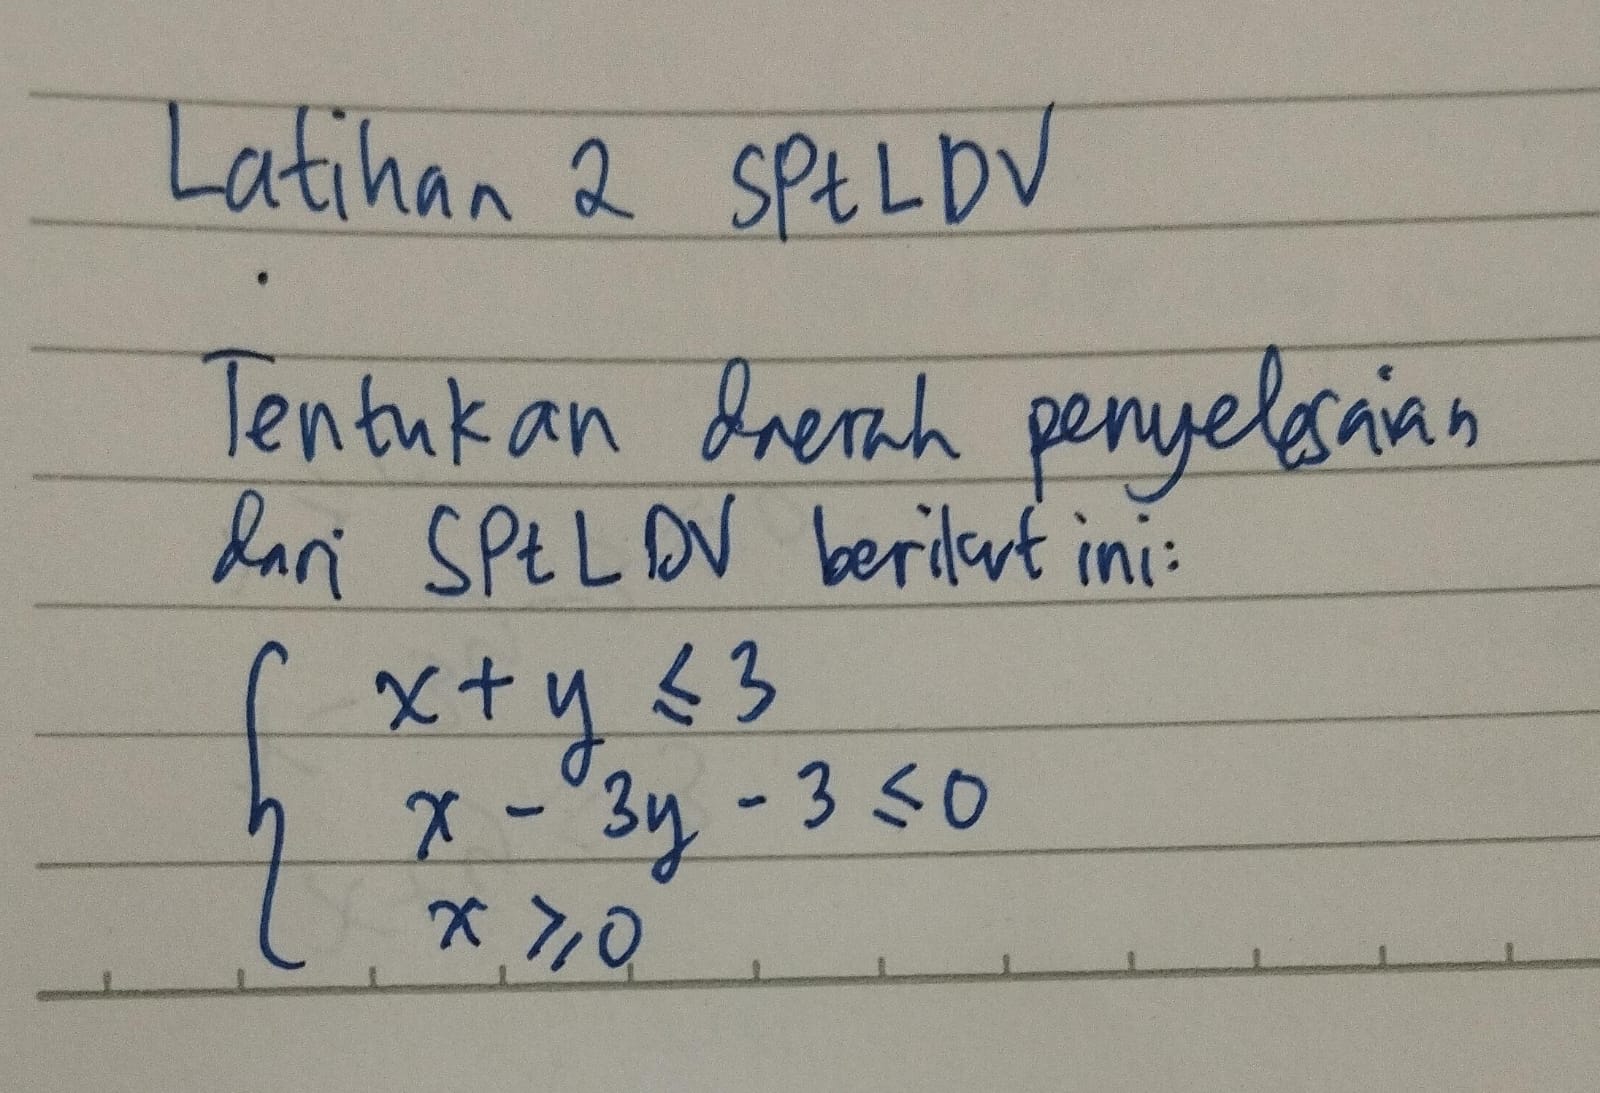 Latihan 2 SPtLDV
Tentukan daerah penyelesaian
dari SPtLDV berikut ini:
x + y ≤ 3
x - 3y - 3 ≤ 0
x ≥ 0